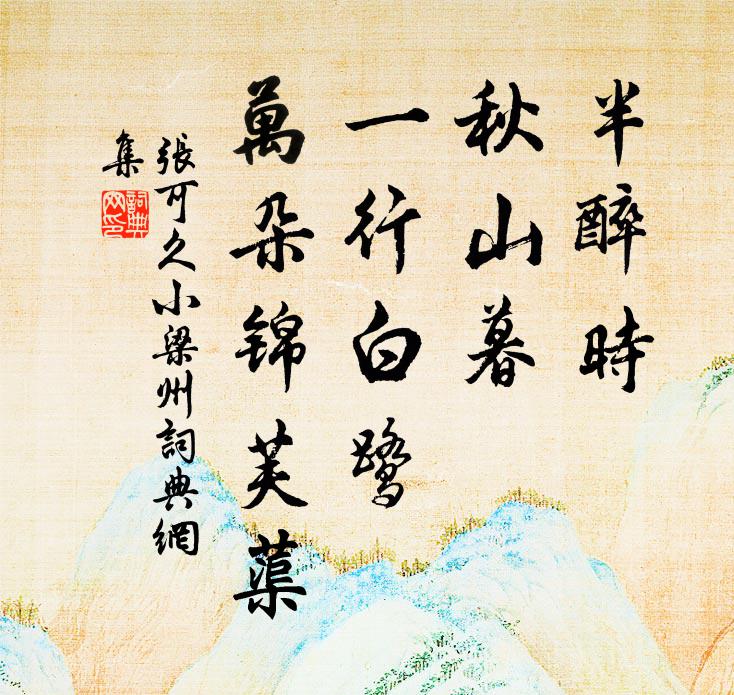 半醉時
秋山暮
一行白鹭
萬朵锦芙蕖
張可久小梁州詞典網
集
詞典
网印